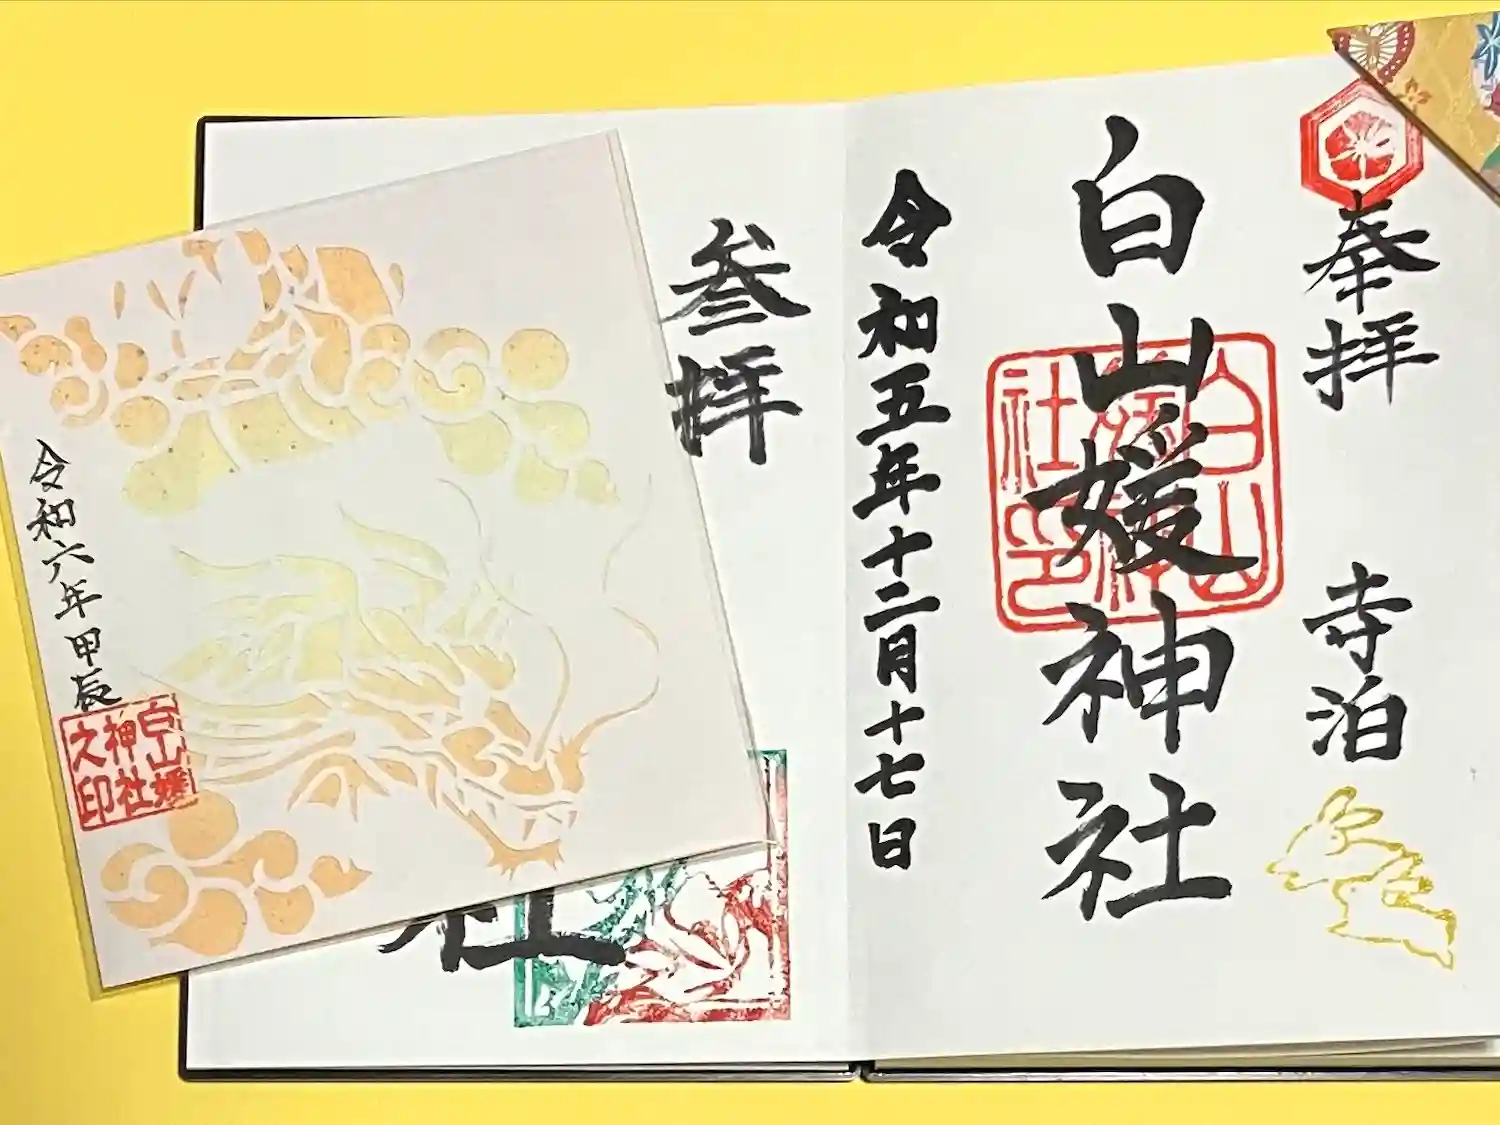 奉拝
寺泊
白山媛神社
白山
媛神
社印
令和五年十二月十七日
参拝
社
令和六年甲辰
白山媛
神社
之印